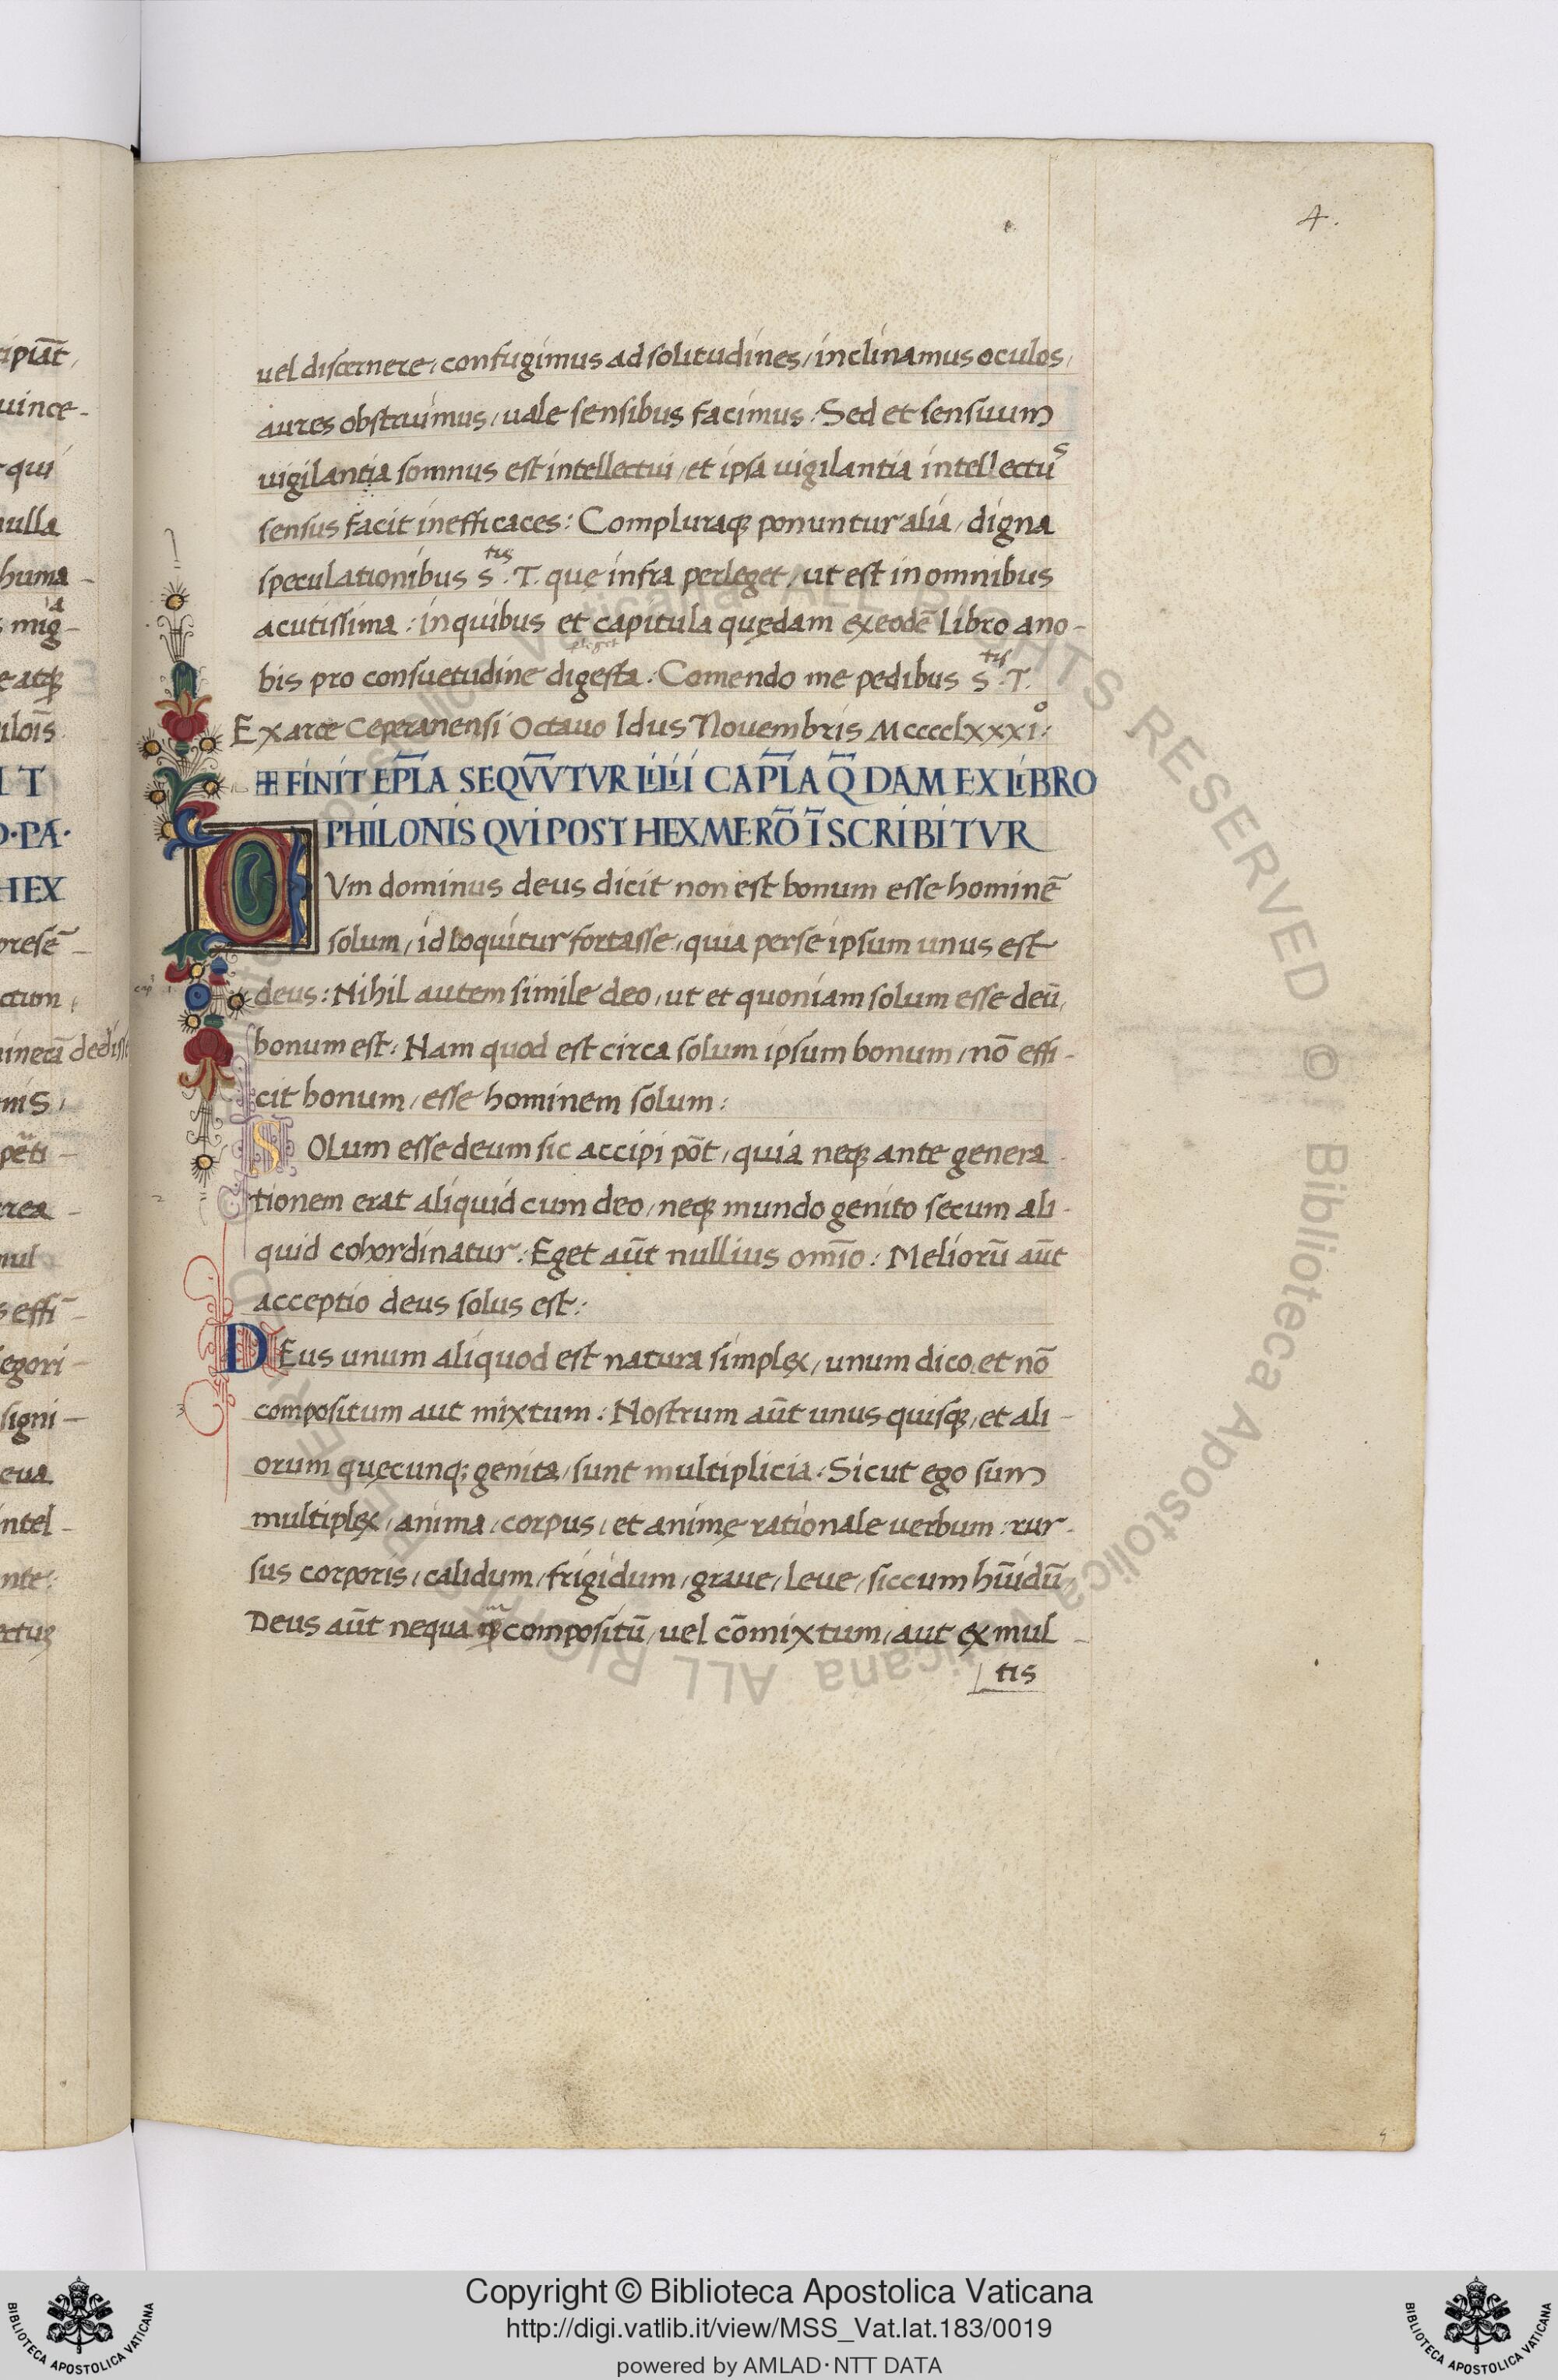 4.
uel discernere, confugimus ad solitudines, inclinamus oculos,
aures obstruimus, uale sensibus facimus. Sed et sensuum
uigilantia somnus est intellectui, et ipsa uigilantia intellectuˢ
sensus facit inefficaces: Compluraqꝫ ponuntur alia, digna
speculationibus S.ᵗⁱˢ T. quę infra perleget, ut est in omnibus
acutissima: in quibus et capitula quędam ex eodē Libro a no-
bis pro consuetudine digesta. Comendo me pedibus S.ᵗⁱˢ T.
Ex arce Ceperanensi Octauo Idus Nouembris MccccLxxxi.º
FINIT EPL̄A SEQVV̄TVR LiLii CAPL̄A Q̄DAM EX LiBRO
PHILONIS QVI POST HEXMERŌ ĪSCRIBITVR
CVm dominus deus dicit non est bonum esse hominē
solum, id loquitur fortasse, quia per se ipsum unus est
deus: Nihil autem simile deo, ut et quoniam solum esse deū,
bonum est: Nam quod est circa solum ipsum bonum, nō effi-
cit bonum, esse hominem solum:
SOLum esse deum sic accipi pōt, quia neqꝫ ante genera-
tionem erat aliquid cum deo, neqꝫ mundo genito secum ali-
quid cohordinatur: Eget aūt nullius om̄io: Meliorū aūt
acceptio deus solus est:
DEus unum aliquod est natura simplex, unum dico et nō
compositum aut mixtum: Nostrum aūt unus quisqꝫ, et ali-
orum quęcunqꝫ genita, sunt multiplicia: Sicut ego sum
multiplex, anima, corpus, et animę rationale uerbum: rur-
sus corporis, calidum, frigidum, graue, leue, siccum hūidū,
Deus aūt nequa compositū, uel cōmixtum, aut ex mul-
tis
ALL RIGHTS RESERVED © Biblioteca Apostolica Vaticana
Copyright © Biblioteca Apostolica Vaticana
http://digi.vatlib.it/view/MSS_Vat.lat.183/0019
powered by AMLAD·NTT DATA
BIBLIOTECA APOSTOLICA VATICANA
BIBLIOTECA APOSTOLICA VATICANA